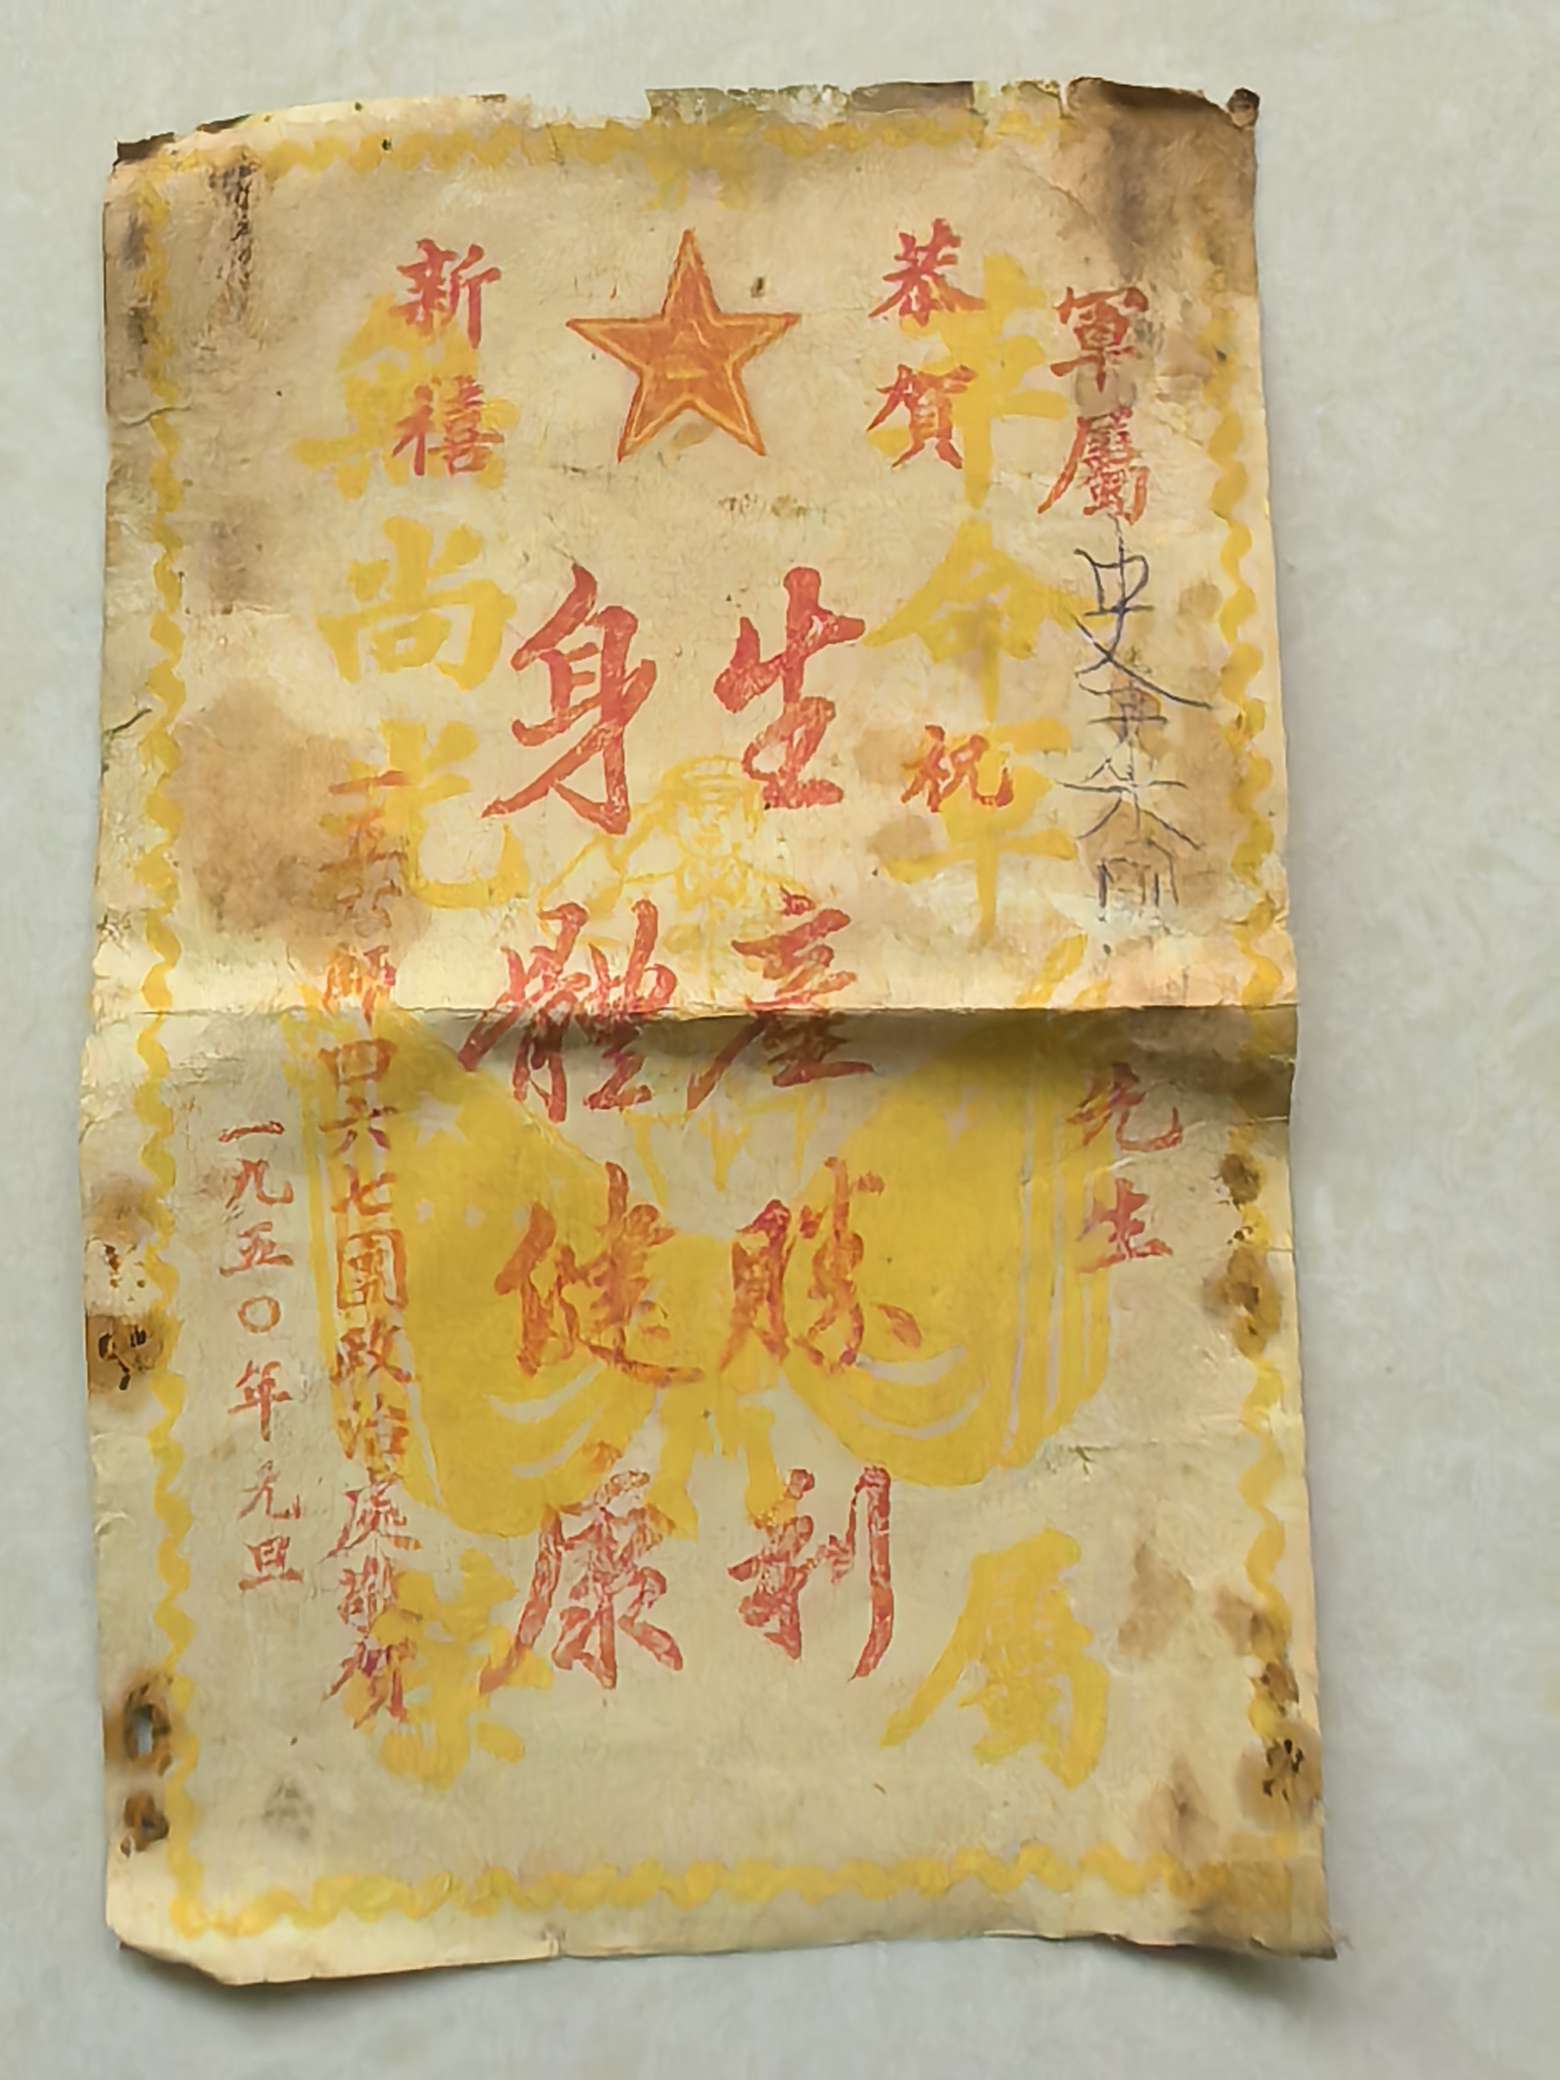 軍屬 史 先生
恭賀
新禧
祝
生產勝利
身體健康
一五六師四六七團政治處敬賀
一九五〇年元旦
革命军属
無尚光荣